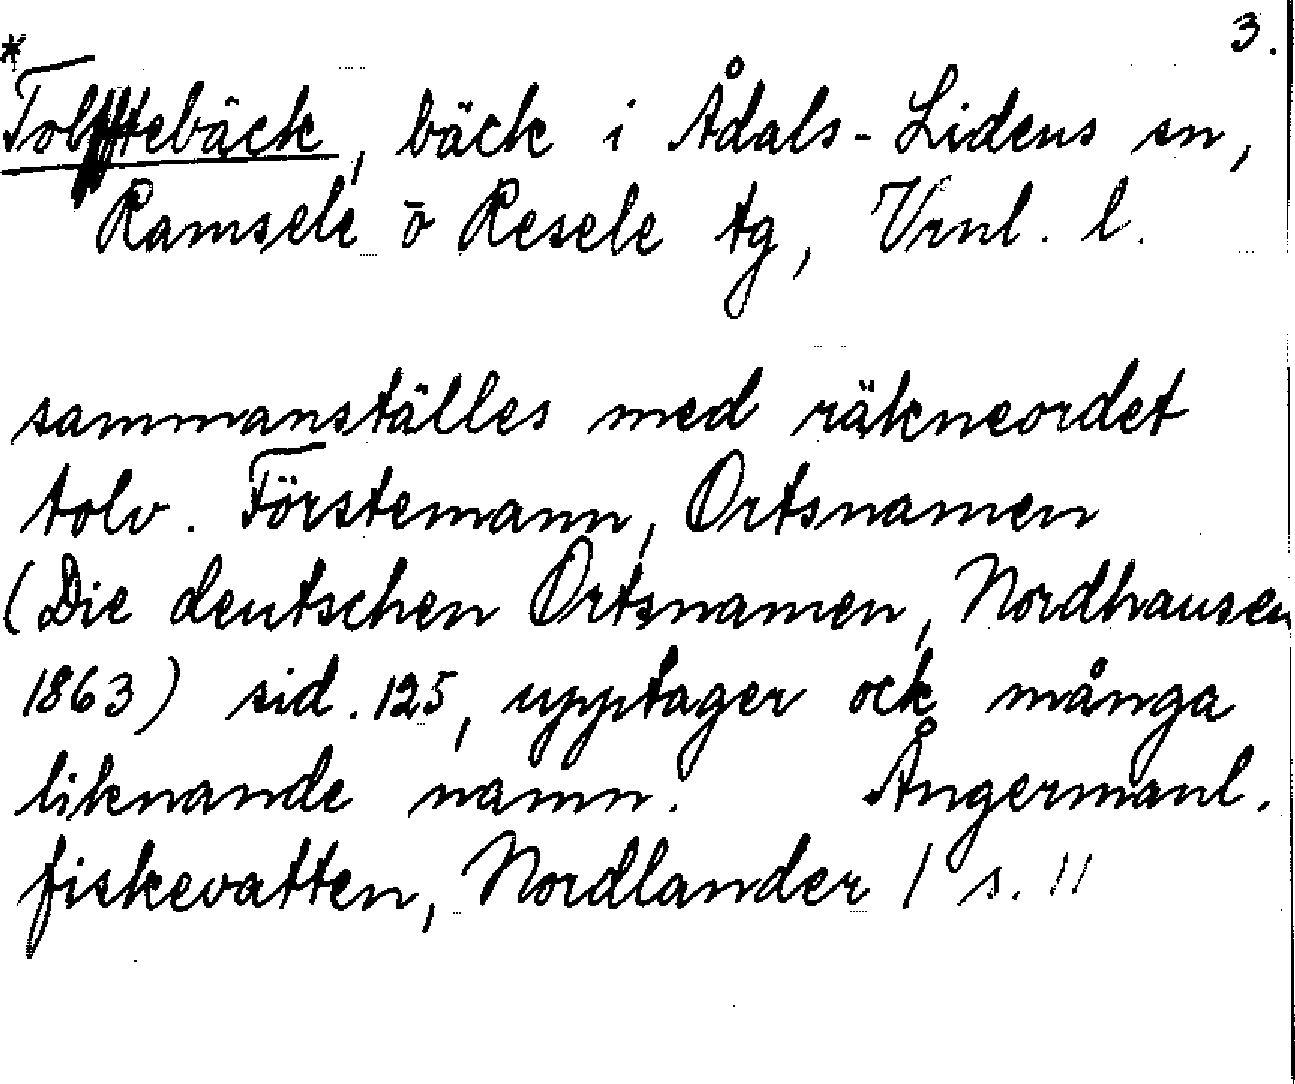 3.
*Tolftebäck, bäck i Ådals-Lidens sn,
Ramsele o Resele tg, Vrnl. l.
sammanställes med räkneordet
tolv. Förstemann, Ortsnamen
(Die deutschen Ortsnamen, Nordhausen
1863) sid. 125, upptager ock många
liknande namn. Ångermanl.
fiskevatten, Nordlander 1 s. 11